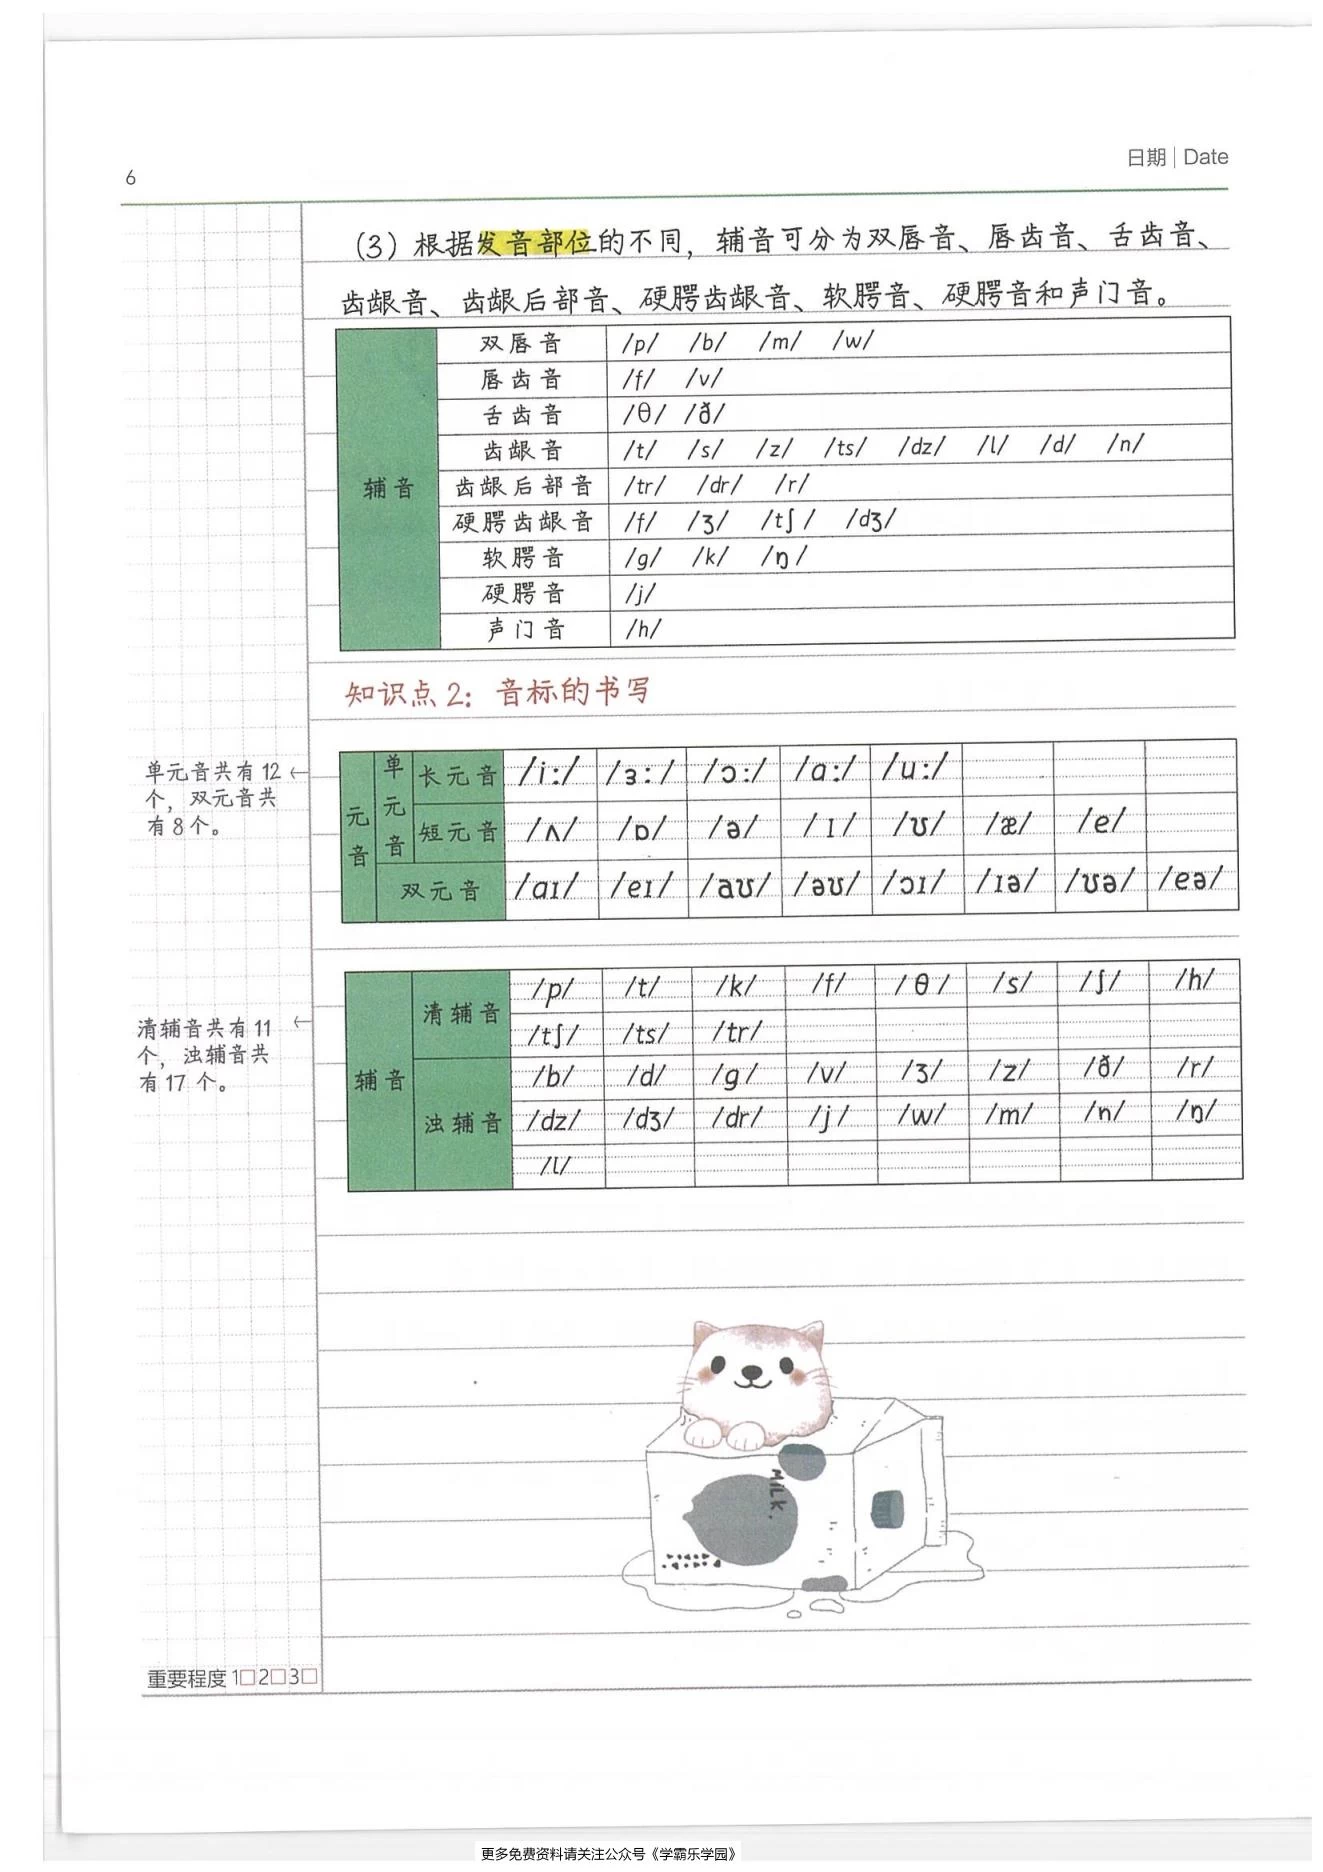 日期 | Date
6
(3) 根据发音部位的不同，辅音可分为双唇音、唇齿音、舌齿音、
齿龈音、齿龈后部音、硬腭齿龈音、软腭音、硬腭音和声门音。
辅音
双唇音 /p/ /b/ /m/ /w/
唇齿音 /f/ /v/
舌齿音 /θ/ /ð/
齿龈音 /t/ /s/ /z/ /ts/ /dz/ /l/ /d/ /n/
齿龈后部音 /tr/ /dr/ /r/
硬腭齿龈音 /f/ /ʒ/ /tʃ/ /dʒ/
软腭音 /g/ /k/ /ŋ/
硬腭音 /j/
声门音 /h/
知识点2：音标的书写
单元音共有12
个，双元音共
有8个。
元音
单元音
长元音 /i:/ /ɜ:/ /ɔ:/ /ɑ:/ /u:/
短元音 /ʌ/ /ɒ/ /ə/ /ɪ/ /ʊ/ /æ/ /e/
双元音 /aɪ/ /eɪ/ /aʊ/ /əʊ/ /ɔɪ/ /ɪə/ /ʊə/ /eə/
清辅音共有11
个，浊辅音共
有17个。
辅音
清辅音 /p/ /t/ /k/ /f/ /θ/ /s/ /ʃ/ /h/
/tʃ/ /ts/ /tr/
浊辅音 /b/ /d/ /g/ /v/ /ʒ/ /z/ /ð/ /r/
/dz/ /dʒ/ /dr/ /j/ /w/ /m/ /n/ /ŋ/
/l/
MILK.
重要程度 1□2□3□
更多免费资料请关注公众号《学霸乐学园》